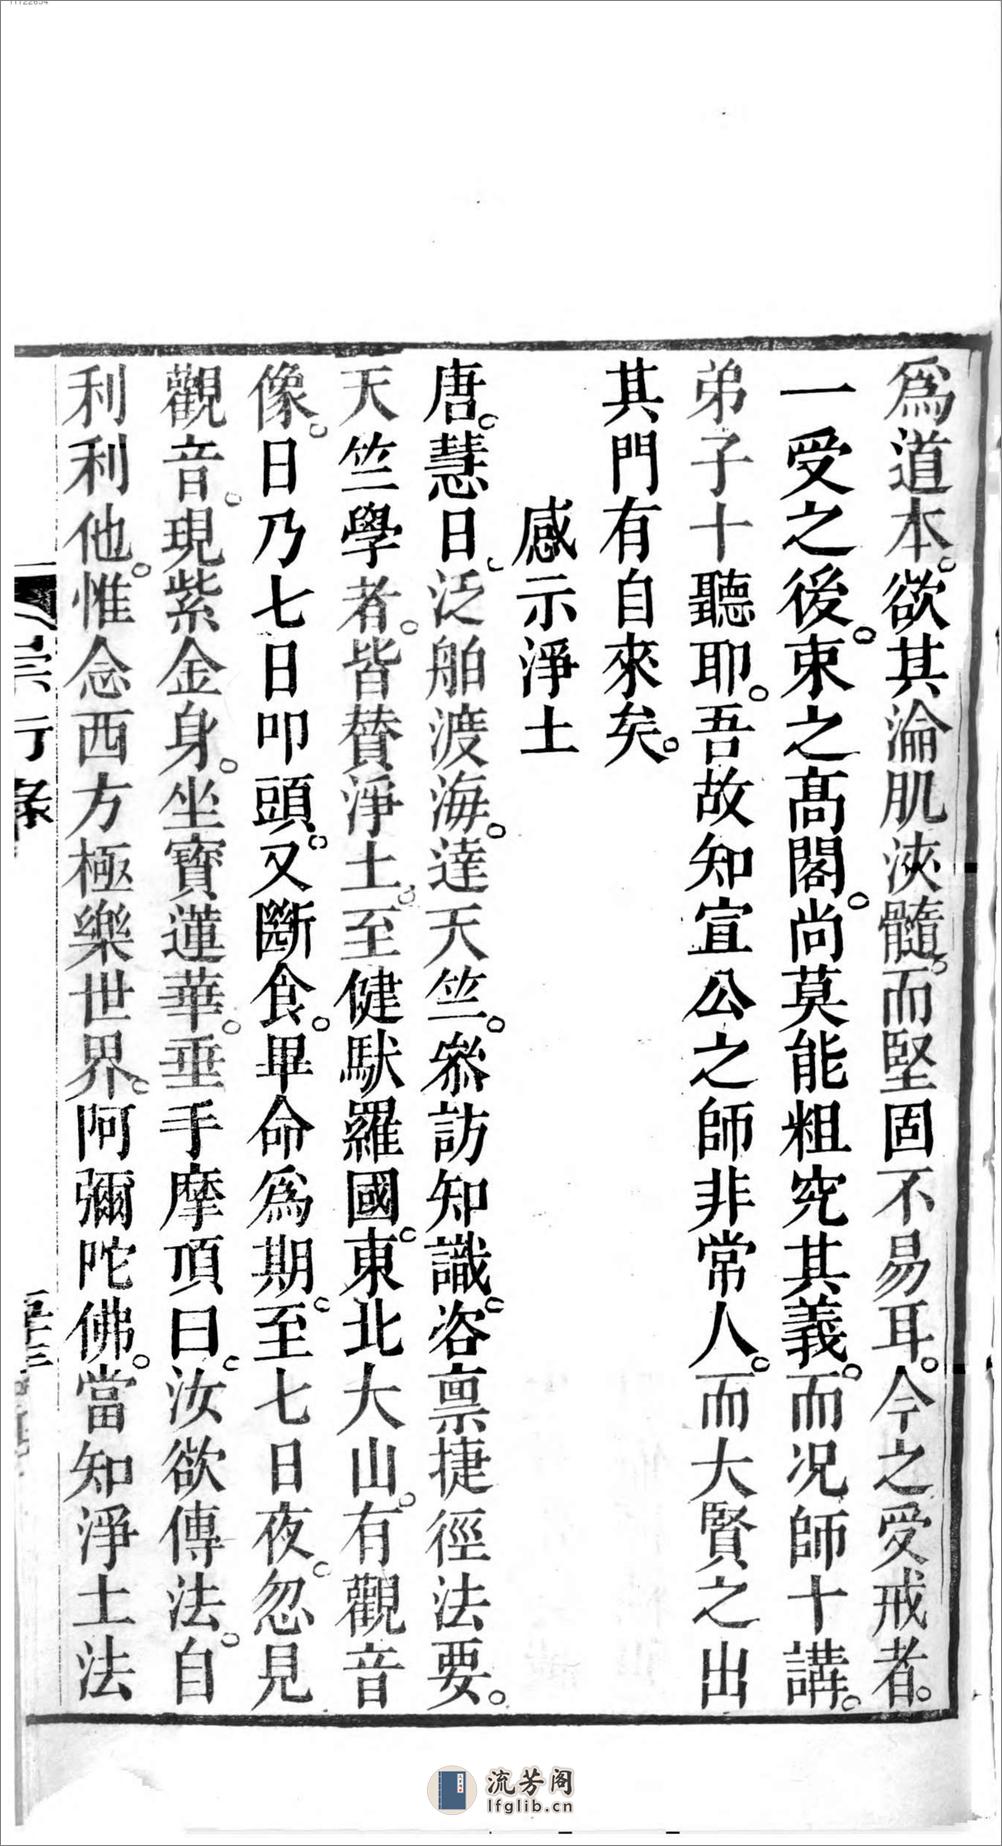 爲道本。欲其淪肌浹髓。而堅固不易耳。今之受戒者。
一受之後。束之高閣。尚莫能粗究其義。而况師十講。
弟子十聽耶。吾故知宣公之師非常人。而大賢之出
其門有自來矣。
感示淨土
唐。慧日。泛舶渡海。達天竺。叅訪知識。咨禀捷徑法要。
天竺學者。皆贊淨土。至健馱羅國。東北大山。有觀音
像。日乃七日叩頭。又斷食。畢命爲期。至七日夜。忽見
觀音。現紫金身。坐寶蓮華。垂手摩頂曰。汝欲傳法。自
利利他。惟念西方極樂世界。阿彌陀佛。當知淨土法
行錄
流芳阁
lfglib.cn